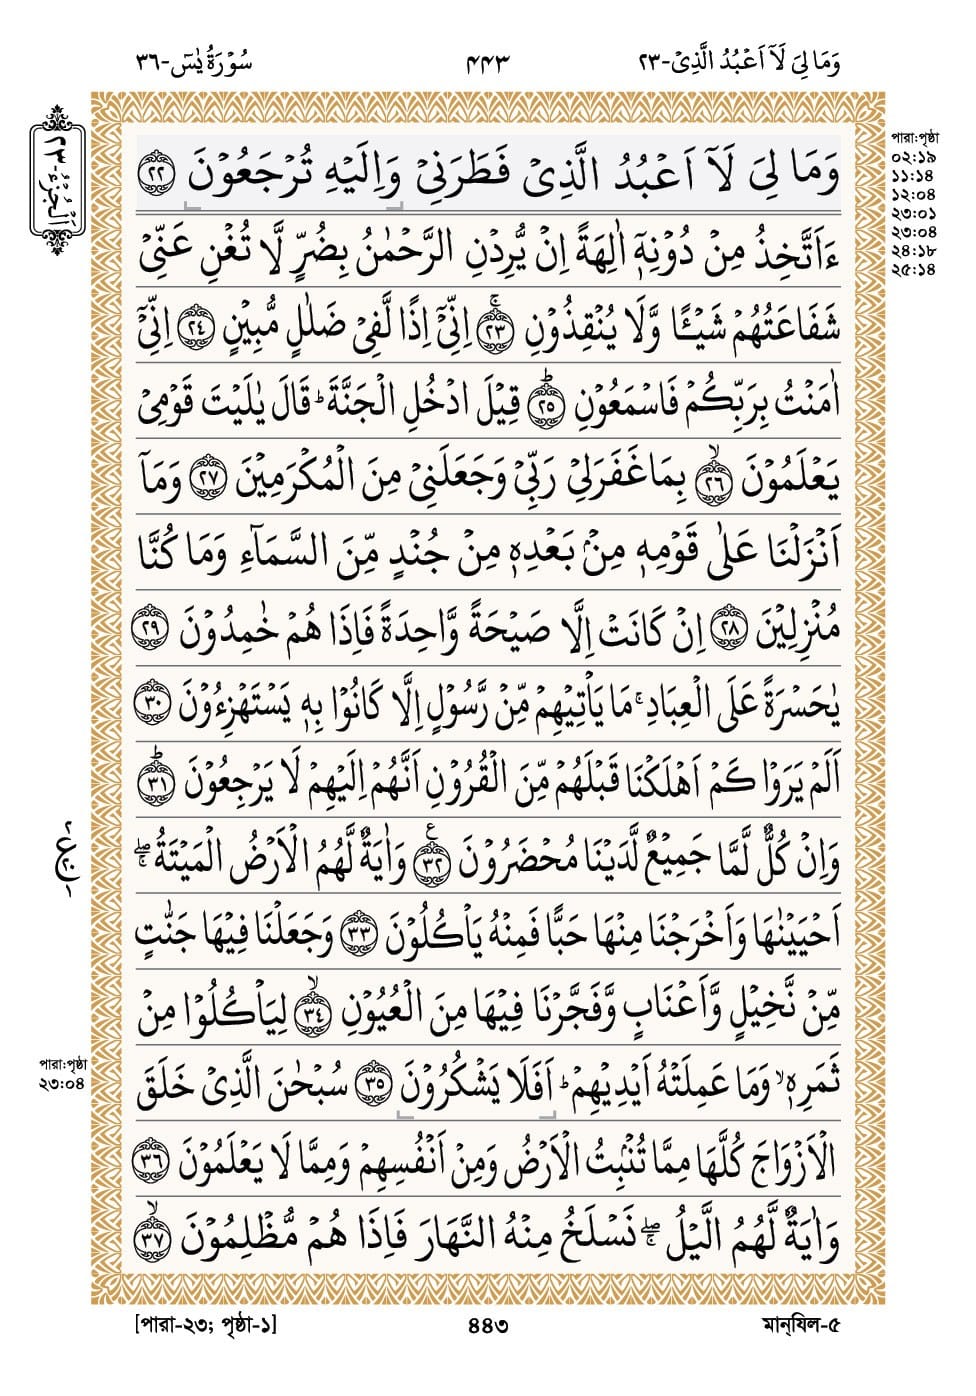 وَمَا لِیَ لَاۤ اَعۡبُدُ الَّذِیۡ-۲۳
۴۴۳
سُوۡرَةُ یٰسٓ-۳۶
পারা:পৃষ্ঠা
০২:১৯
১১:১৪
১২:০৪
২৩:০১
২৩:০৪
২৪:১৮
২৫:১৪
اَلۡجُزۡءُ-۲۳
وَمَا لِیَ لَاۤ اَعۡبُدُ الَّذِیۡ فَطَرَنِیۡ وَاِلَیۡهِ تُرۡجَعُوۡنَ ۲۲
ءَاَتَّخِذُ مِنۡ دُوۡنِهٖۤ اٰلِهَةً اِنۡ یُّرِدۡنِ الرَّحۡمٰنُ بِضُرٍّ لَّا تُغۡنِ عَنِّیۡ
شَفَاعَتُهُمۡ شَیۡـًٔا وَّلَا یُنۡقِذُوۡنِ ۚ۲۳ اِنِّیۡۤ اِذًا لَّفِیۡ ضَلٰلٍ مُّبِیۡنٍ ۲۴ اِنِّیۡۤ
اٰمَنۡتُ بِرَبِّكُمۡ فَاسۡمَعُوۡنِ ؕ۲۵ قِیۡلَ ادۡخُلِ الۡجَنَّةَ ؕ قَالَ یٰلَیۡتَ قَوۡمِیۡ
یَعۡلَمُوۡنَ ۙ۲۶ بِمَا غَفَرَلِیۡ رَبِّیۡ وَجَعَلَنِیۡ مِنَ الۡمُكۡرَمِیۡنَ ۲۷ وَمَاۤ
اَنۡزَلۡنَا عَلٰی قَوۡمِهٖ مِنۡۢ بَعۡدِهٖ مِنۡ جُنۡدٍ مِّنَ السَّمَآءِ وَمَا كُنَّا
مُنۡزِلِیۡنَ ۲۸ اِنۡ كَانَتۡ اِلَّا صَیۡحَةً وَّاحِدَةً فَاِذَا هُمۡ خٰمِدُوۡنَ ۲۹
یٰحَسۡرَةً عَلَی الۡعِبَادِ ۚ مَا یَاۡتِیۡهِمۡ مِّنۡ رَّسُوۡلٍ اِلَّا كَانُوۡا بِهٖ یَسۡتَهۡزِءُوۡنَ ۳۰
اَلَمۡ یَرَوۡا كَمۡ اَهۡلَكۡنَا قَبۡلَهُمۡ مِّنَ الۡقُرُوۡنِ اَنَّهُمۡ اِلَیۡهِمۡ لَا یَرۡجِعُوۡنَ ؕ۳۱
وَاِنۡ كُلٌّ لَّمَّا جَمِیۡعٌ لَّدَیۡنَا مُحۡضَرُوۡنَ ۳۲ وَاٰیَةٌ لَّهُمُ الۡاَرۡضُ الۡمَیۡتَةُ ۖۚ
اَحۡیَیۡنٰهَا وَاَخۡرَجۡنَا مِنۡهَا حَبًّا فَمِنۡهُ یَاۡكُلُوۡنَ ۳۳ وَجَعَلۡنَا فِیۡهَا جَنّٰتٍ
مِّنۡ نَّخِیۡلٍ وَّاَعۡنَابٍ وَّفَجَّرۡنَا فِیۡهَا مِنَ الۡعُیُوۡنِ ۙ۳۴ لِیَاۡكُلُوۡا مِنۡ
পারা:পৃষ্ঠা
২৩:০৪
ثَمَرِهٖ ۙ وَمَا عَمِلَتۡهُ اَیۡدِیۡهِمۡ ؕ اَفَلَا یَشۡكُرُوۡنَ ۳۵ سُبۡحٰنَ الَّذِیۡ خَلَقَ
الۡاَزۡوَاجَ كُلَّهَا مِمَّا تُنۡۢبِتُ الۡاَرۡضُ وَمِنۡ اَنۡفُسِهِمۡ وَمِمَّا لَا یَعۡلَمُوۡنَ ۳۶
وَاٰیَةٌ لَّهُمُ الَّیۡلُ ۖۚ نَسۡلَخُ مِنۡهُ النَّهَارَ فَاِذَا هُمۡ مُّظۡلِمُوۡنَ ۙ۳۷
[পারা-২৩; পৃষ্ঠা-১]
৪৪৩
মান্‌যিল-৫